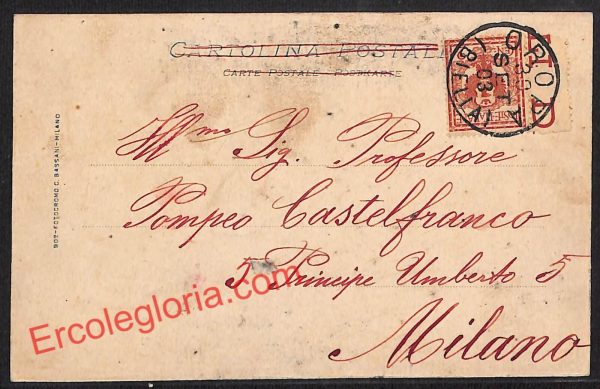 CARTOLINA POSTALE
CARTE POSTALE - POSTKARTE
OROPA
SET
03
Ill mo Sig. Professore
Pompeo Castelfranco
5 Principe Umberto 5
Milano
902-FOTOCROMO C. BASSANI-MILANO
Ercolegloria.com